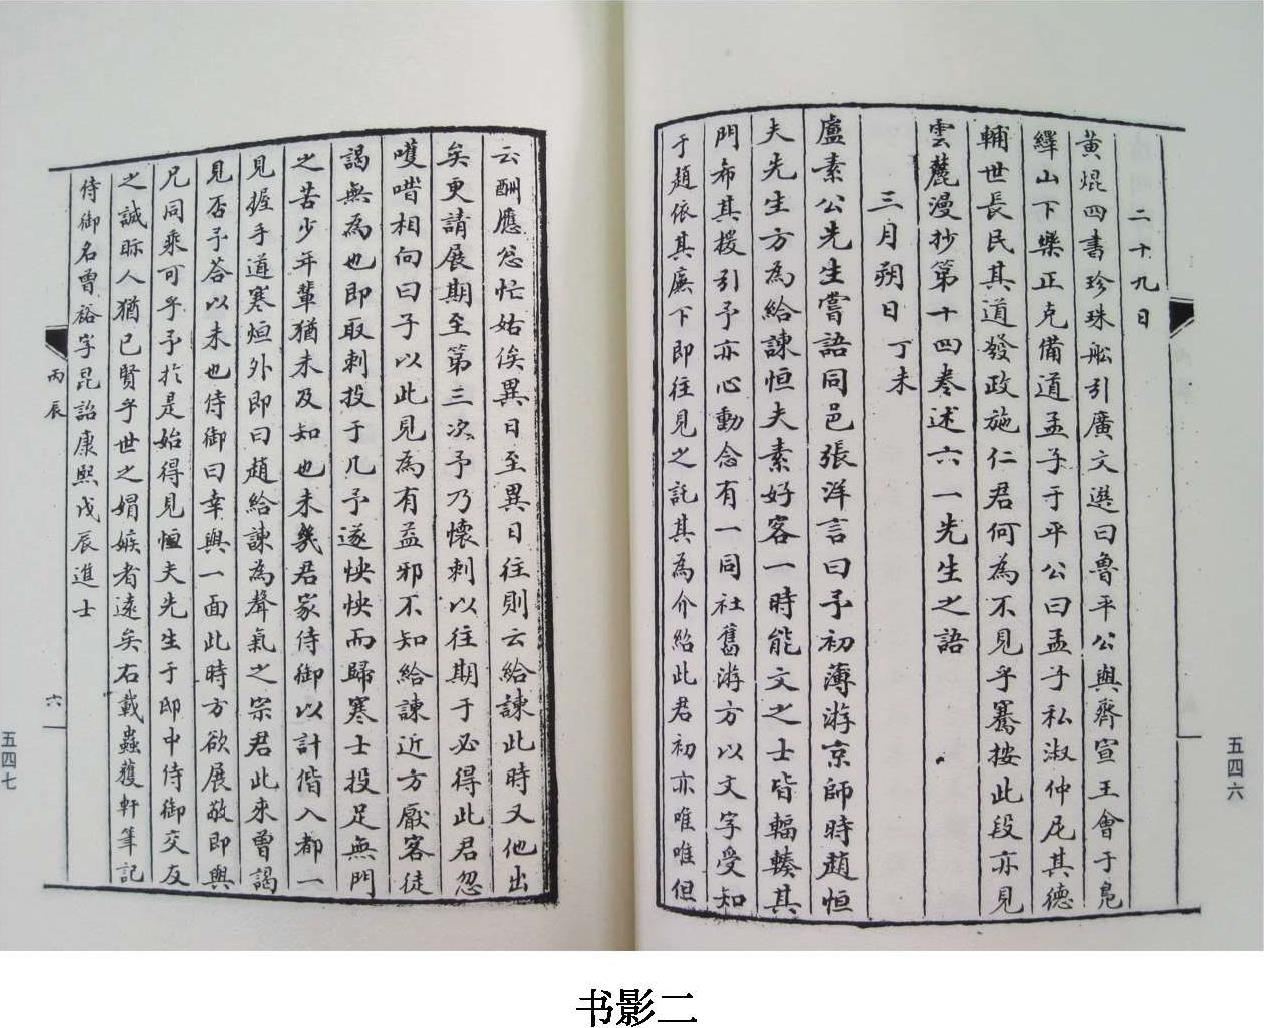 二十九日
黃焜四書珍珠船引廣文選曰魯平公與齊宣王會于鳧
繹山下樂正克備道孟子于平公曰孟子私淑仲尼其德
輔世長民其道發政施仁君何為不見乎騫按此段亦見
雲麓漫抄第十四卷述六一先生之語
三月朔日 丁未
盧素公先生嘗語同邑張洋言曰予初薄游京師時趙恒
夫先生方為給諫恒夫素好客一時能文之士皆輻輳其
門希其援引予亦心動念有一同社舊游方以文字受知
于趙依其廡下即往見之託其為介紹此君初亦唯唯但
五四六
云酬應怱忙姑俟異日至異日往則云給諫此時又他出
矣更請展期至第三次予乃懷刺以往期于必得此君忽
嚄唶相向曰子以此見為有益邪不知給諫近方厭客徒
謁無為也即取刺投于几予遂怏怏而歸寒士投足無門
之苦少年輩猶未及知也未幾君家侍御以計偕入都一
見握手道寒烜外即曰趙給諫為聲氣之宗君此來曾謁
見否予荅以未也侍御曰幸與一面此時方欲展敬即與
兄同乘可乎予於是始得見恒夫先生于邸中侍御交友
之誠眎人猶已賢乎世之媢嫉者遠矣右載蟲獲軒筆記
侍御名曾裕字昆詒康熙戊辰進士
丙辰
六
五四七
书影二